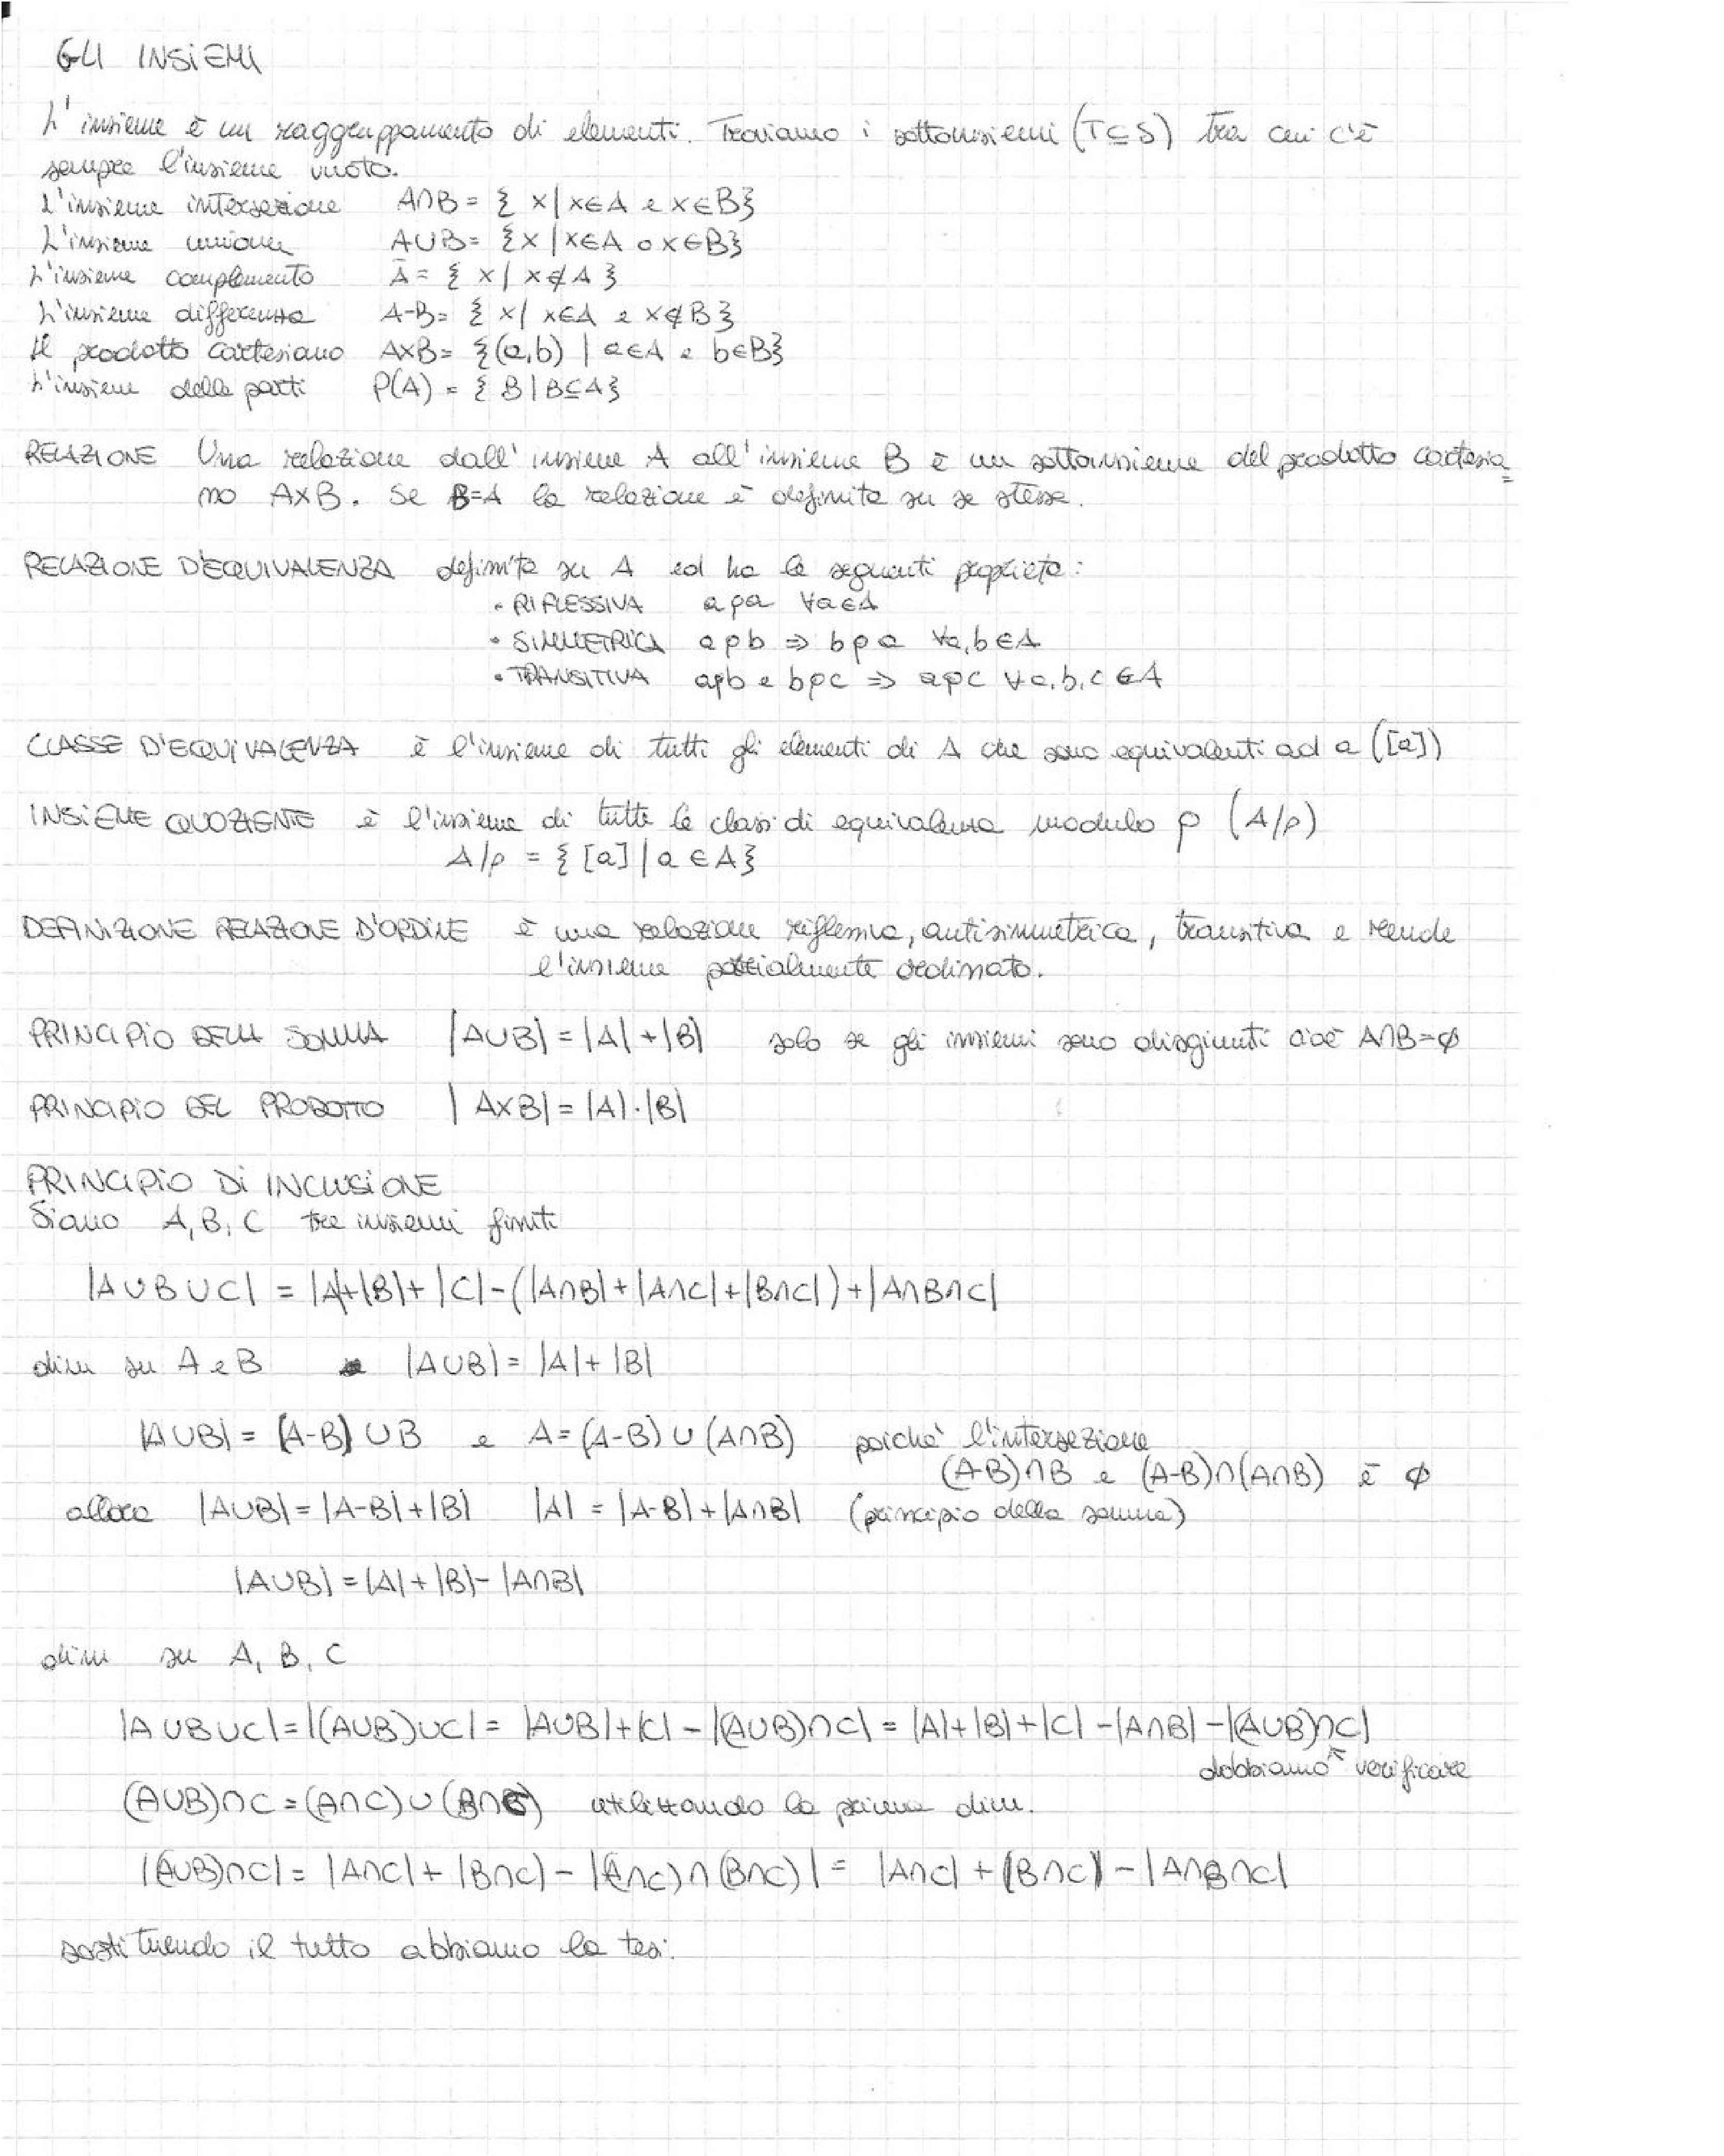 GLI INSIEMI
L'insieme è un raggruppamento di elementi. Troviamo i sottoinsiemi (T⊆S) tra cui c'è
sempre l'insieme vuoto.
L'insieme intersezione A∩B = { x | x∈A e x∈B}
L'insieme unione A∪B = {x | x∈A o x∈B}
L'insieme complemento Ā = { x | x∉A }
L'insieme differenza A-B = { x | x∈A e x∉B }
Il prodotto cartesiano AxB = {(a,b) | a∈A e b∈B}
L'insieme delle parti P(A) = { B | B⊆A}
RELAZIONE Una relazione dall'insieme A all'insieme B è un sottoinsieme del prodotto cartesia=
no AxB. Se B=A la relazione è definita su se stessa.
RELAZIONE D'EQUIVALENZA definita su A ed ha le seguenti proprietà:
• RIFLESSIVA aρa ∀a∈A
• SIMMETRICA aρb ⇒ bρa ∀a,b∈A
• TRANSITIVA aρb e bρc ⇒ aρc ∀a,b,c∈A
CLASSE D'EQUIVALENZA è l'insieme di tutti gli elementi di A che sono equivalenti ad a ([a])
INSIEME QUOZIENTE è l'insieme di tutte le classi di equivalenza modulo ρ (A/ρ)
A/ρ = { [a] | a∈A}
DEFINIZIONE RELAZIONE D'ORDINE è una relazione riflessiva, antisimmetrica, transitiva e rende
l'insieme parzialmente ordinato.
PRINCIPIO DELLA SOMMA |A∪B| = |A| + |B| solo se gli insiemi sono disgiunti cioè A∩B=∅
PRINCIPIO DEL PRODOTTO |AxB| = |A|·|B|
PRINCIPIO DI INCLUSIONE
Siano A, B, C tre insiemi finiti
|A∪B∪C| = |A|+|B|+|C|-(|A∩B|+|A∩C|+|B∩C|)+|A∩B∩C|
dim su A e B |A∪B| = |A| + |B|
|A∪B| = (A-B)∪B e A = (A-B)∪(A∩B) poichè l'intersezione
(A-B)∩B e (A-B)∩(A∩B) è ∅
allora |A∪B| = |A-B|+|B| |A| = |A-B|+|A∩B| (principio della somma)
|A∪B| = |A|+|B|-|A∩B|
dim su A, B, C
|A∪B∪C| = |(A∪B)∪C| = |A∪B|+|C|-|(A∪B)∩C| = |A|+|B|+|C|-|A∩B|-|(A∪B)∩C|
dobbiamo verificare
(A∪B)∩C = (A∩C)∪(B∩C) utilizzando la prima dim.
|(A∪B)∩C| = |A∩C| + |B∩C| - |(A∩C)∩(B∩C)| = |A∩C| + |B∩C| - |A∩B∩C|
sostituendo il tutto abbiamo la tesi.